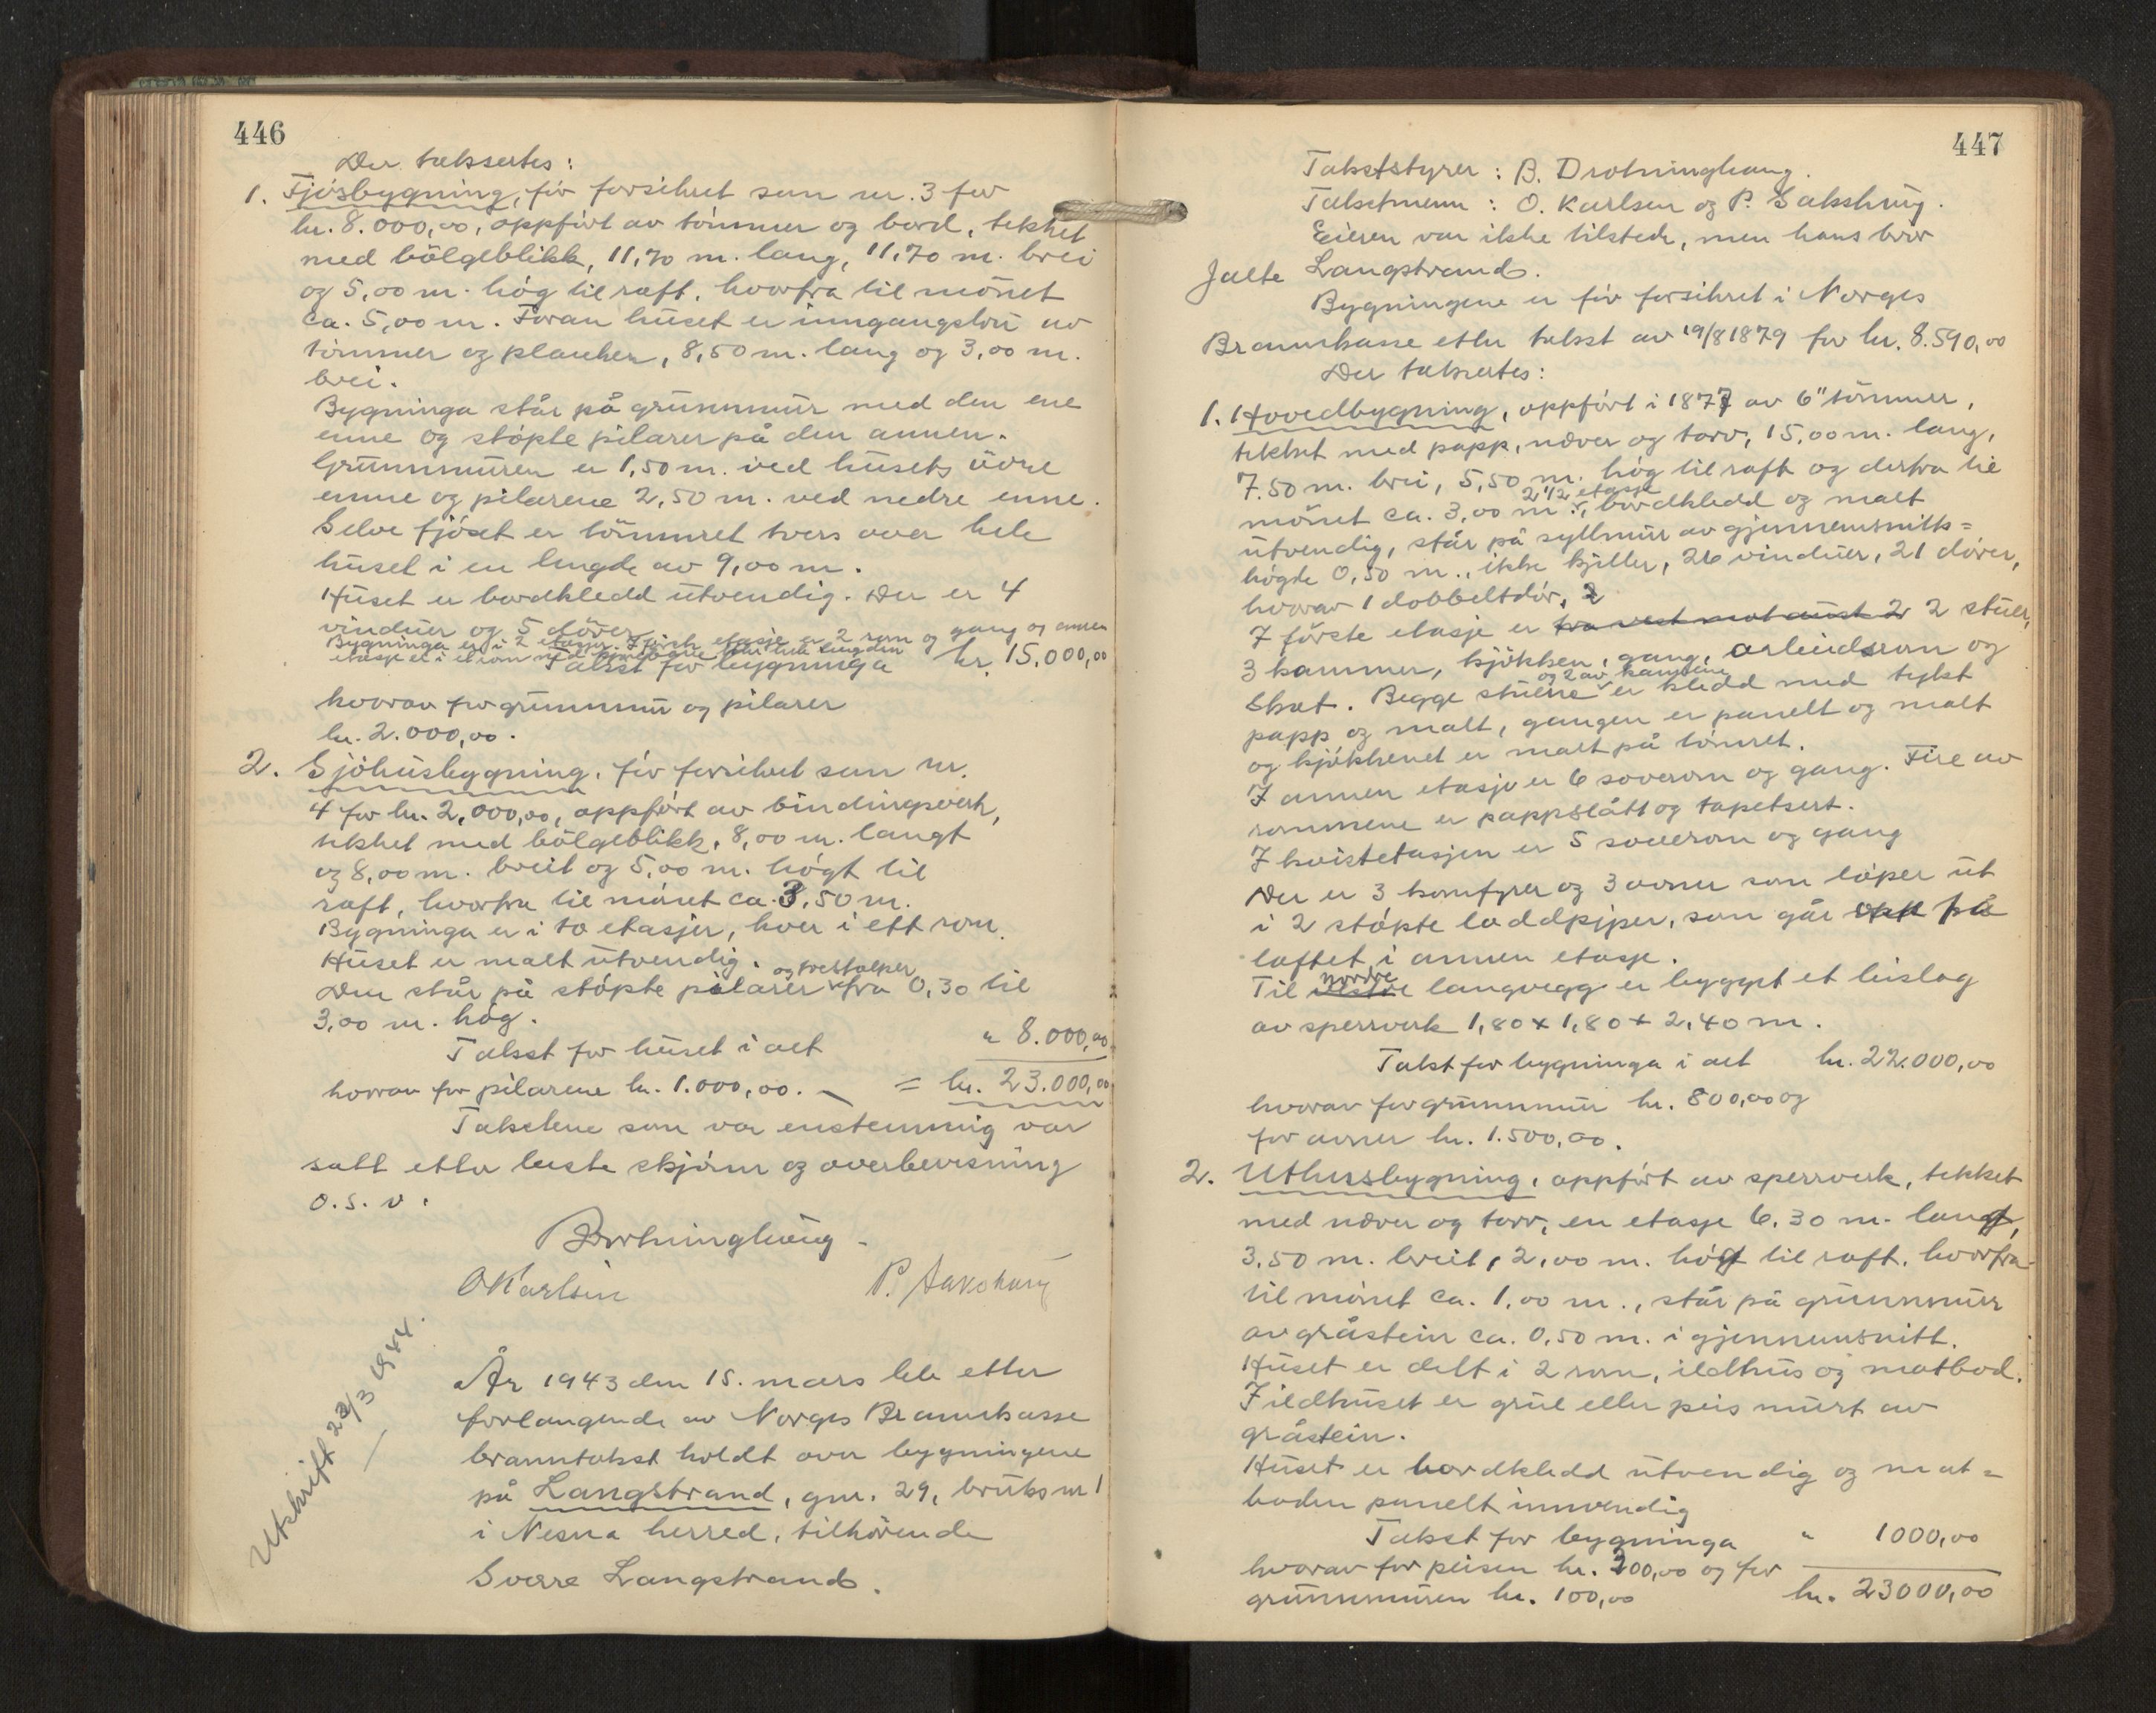 446
Der taksertes:
1. Fjósbygning, fór forsikret som nr. 3 for
kr. 8.000,00, oppfórt av tómmer og bord, tekket
med bölgeblikk, 11,70 m. lang, 11,70 m. brei
og 5,00 m. hóg til raft, hvorfra til mónet
ca. 5,00 m. Foran huset er inngangsbru av
tómmer og planker, 8,50 m. lang og 3,00 m.
brei.
Bygninga står på grunnmur med den ene
enne og stópte pilarer på den annen.
Grunnmuren er 1,50 m. ved husets óvre
enne og pilarene 2,50 m. ved nedre enne.
Selve fjóset er tömmret tvers over hele
huset i en lengde av 9,00 m.
Huset er bordkledd utvendig. Der er 4
vinduer og 5 dórer
Bygninga er i 2 etasjer. I fórste etasje er 2 rom og gang og annen
etasje er i et rom med
Takst for bygninga kr. 15.000,00
hvorav for grunnmur og pilarer
kr. 2.000,00.
2. Sjóhusbygning, fór forsikret som nr.
4 for kr. 2.000,00, oppfórt av bindingsverk,
tekket med bölgeblikk, 8,00 m. langt
og 8,00 m. breit og 5,00 m. hógt til
raft, hvorfra til mónet ca. 3,50 m.
Bygninga er i to etasjer, hver i ett rom.
Huset er malt utvendig.
og trestolper
Den står på stópte pilarer fra 0,30 til
3,00 m. hóg.
Takst for huset i alt " 8.000,00
hvorav for pilarene kr. 1.000,00. = kr. 23.000,00
Takstene som var enstemmig var
satt etter beste skjónn og overbevisning
o.s.v.
B Drotninghaug
O Karlsen P. Sakshaug
Utskrift 23/3 1944.
År 1943 den 15. mars ble etter
forlangende av Norges Brannkasse
branntakst holdt over bygningene
på Langstrand, gnr. 29, bruksnr 1
i Nesna herred, tilhörende
Sverre Langstrand.
447
Takststyrer: B. Drotninghaug.
Takstmenn: O. Karlsen og P. Sakshaug.
Eieren var ikke tilstede, men hans bror
Jalte Langstrand.
Bygningene er fór forsikret i Norges
Brannkasse etter takst av 19/8 1879 for kr. 8.590,00
Der taksertes:
1. Hovedbygning, oppfórt i 1877 av 6" tómmer,
tekket med papp, never og torv, 15,00 m. lang,
7.50 m. brei, 5,50 m. hóg til raft og derfra til
2 1/2 etasje
mónet ca. 3,00 m., bordkledd og malt
utvendig, står på syllmur av gjennemsnitts=
högde 0,50 m., ikke kjeller, 26 vinduer, 21 dórer,
hvorav 1 dobbeltdór, 2
I fórste etasje er fra vest mot aust 2 2 stuer,
3 kammer, kjókken, gang, arbeidsrom og
og 2 av kamrene
skot. Begge stuene er kledd med tykt
papp og malt, gangen er panelt og malt
og kjókkenet er malt på tómret.
I annen etasje er 6 soverom og gang. Fire av
rommene er pappslått og tapetsert.
I kvistetasjen er 5 soverom og gang
Der er 3 komfyrer og 3 ovner som lóper ut
i 2 stópte loddpiper, som går opp fra
loftet i annen etasje.
nordre
Til langvegg er bygget et bislag
av sperrverk 1,80 x 1,80 x 2,40 m.
Takst for bygninga i alt kr. 22.000,00
hvorav for grunnmur kr. 800,00 og
for ovner kr. 1.500,00.
2. Uthusbygning, oppfórt av sperrverk, tekket
med never og torv, en etasje 6.30 m. langt,
3.50 m. breit, 2,00 m. högt til raft, hvorfra
til mónet ca. 1,00 m., står på grunnmur
av gråstein ca. 0,50 m. i gjennemsnitt.
Huset er delt i 2 rom, ildhus og matbod.
I ildhuset er grue eller peis murt av
gråstein.
Huset er bordkledd utvendig og mat=
boden panelt innvendig
Takst for bygninga " 1000,00
hvorav for peisen kr. 200,00 og for
grunnmuren kr. 100,00 kr. 23000,00